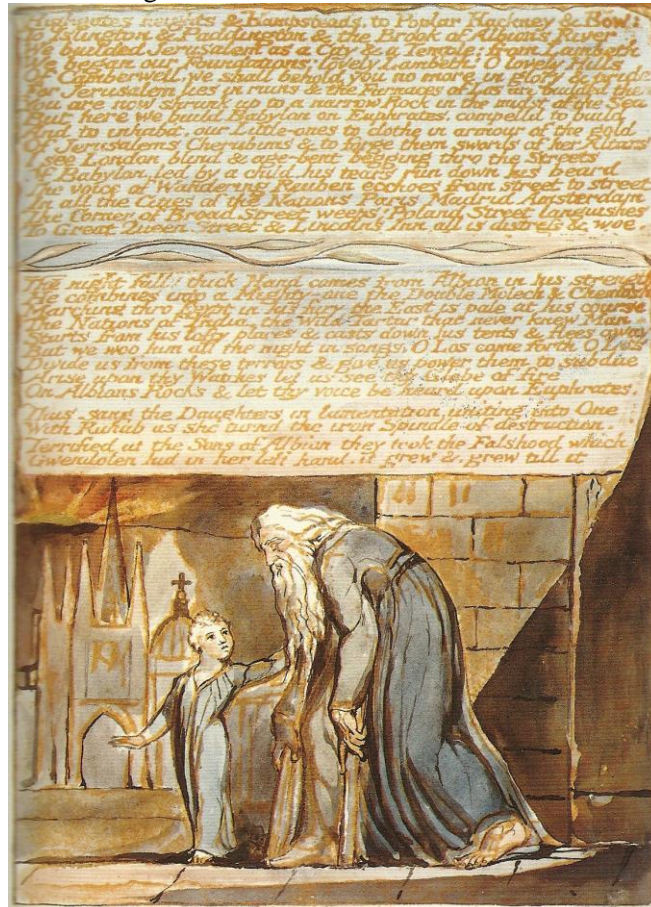 Highgates heights & Hampsteads, to Poplar Hackney & Bow:
To Islington & Paddington & the Brook of Albions River
We builded Jerusalem as a City & a Temple; from Lambeth
We began our Foundations; lovely Lambeth! O lovely Hills
Of Camberwell, we shall behold you no more in glory & pride
For Jerusalem lies in ruins & the Furnaces of Los are builded the
You are now shrunk up to a narrow Rock in the midst of the Sea
But here we build Babylon on Euphrates, compelld to build
And to inhabit, our Little-ones to clothe in armour of the gold
Of Jerusalems Cherubims & to forge them swords of her Altars
I see London blind & age-bent begging thro the Streets
Of Babylon, led by a child, his tears run down his beard
The voice of Wandering Reuben ecchoes from street to street
In all the Cities of the Nations Paris Madrid Amsterdam
The Corner of Broad Street weeps; Poland Street languishes
To Great Queen Street & Lincolns Inn, all is distress & woe.
The night falls thick Hand comes from Albion in his
He combines into a Mighty-one the Double Molech &
Marching thro Egypt in his fury the East is pale at his course
The Nations of India, the Wild Tartar that never knew Man
Starts from his lofty places & casts down his tents & flees away
But we woo him all the night in songs, O Los come forth O Los
Divide us from these terrors & give us power them to subdue
Arise upon thy Watches let us see thy Globe of fire
On Albions Rocks & let thy voice be heard upon Euphrates.
Thus sang the Daughters in lamentation, uniting into One
With Rahab as she turnd the iron Spindle of destruction.
Terrified at the Sons of Albion they took the Falshood which
Gwendolen hid in her left hand. it grew & grew till it